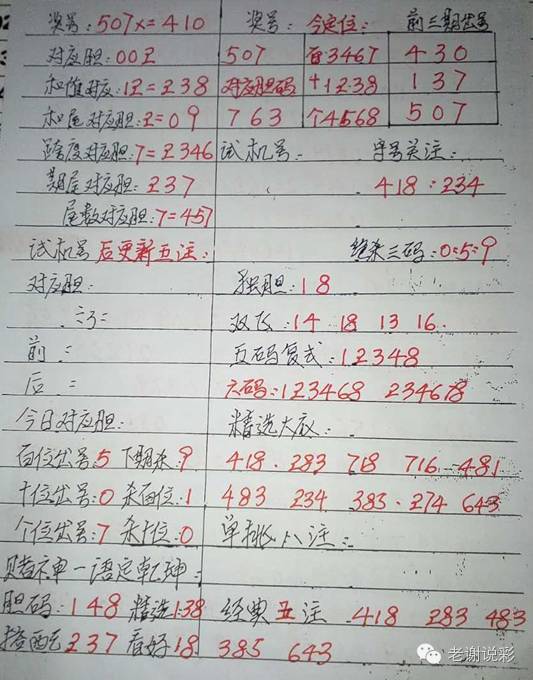 奖号:507x=410 奖号: 今定位: 前三期出号
对应胆:00Z 507 百3467 430
和值对应:1Z=Z38 对应胆码 十1238 137
和尾对应胆:Z=09 763 个4568 507
跨度对应胆:7=Z346 试机号: 字号关注:
期尾对应胆:Z37 418:234
尾数对应胆:7=457
试机号后更新五注: 绝杀三码:0:5:9
对应胆: 独胆:18
双飞:14 18 13 16.
前 = 五码复式:12348
后 = 六码:123468 234678
今日对应胆: 精选大底:
百位出号:5 下期杀:9 418. 283 718 716 481
十位出号:0 杀百位:1 483 234 383. 274 643
个位出号:7 杀十位:0 单挑八注:
赌神一语定乾坤:
胆码:148 精选138 经典五注 418 283 483
搭配237 看好18 385 643
老谢说彩